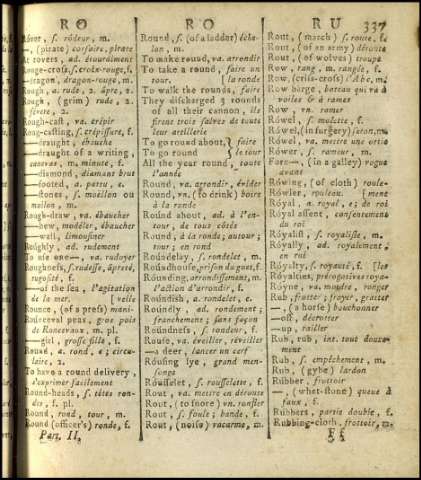 R O
R O
R U
337
s. rôdeur, m.
—, (pirate) corsaire, pirate
At rovers, ad. étourdiment
Rough-cross, s. croix-rouge, f.
dragon, dragon-rouge, m.
Rough, a. rude, 2. âpre, 2.
Rough, (grim) rude, 2.
féroce, 2.
Rough-cast, va. crépir
Roug-casting, s. crépissure, f.
—draught, ébauche
—draught of a writing,
canevas, m. minute, f.
—diamond, diamant brut
—footed, a. pattu, e.
—stones, s. moëllon ou
maillon, m.
Rough-draw, va. ébaucher
—hew, modéler, ébaucher
—wall, limousiner
Roughly, ad. rudement
To use one—, va. rudoyer
Roughness, s. rudesse, âpreté,
rugosité, f.
—of the sea, l'agitation
de la mer. [velle
Rounce, (of a press) mani-
Rounceval peas, gros pois
de Roncevaux, m. pl.
—girl, grosse fille, f.
Round, a. rond, e; circu-
laire, 2.
To have a round delivery,
s'exprimer facilement
Round-heads, s. têtes ron-
des, f. pl.
Round, rond, tour, m.
Round (officer's) ronde, f.
Part. II.
Round, s. (of a ladder) éche-
lon, m.
To make round, va. arrondir
To take a round, faire un
tour. [la ronde
To walk the rounds, faire
They discharged 3 rounds
of all their cannon, ils
firent trois salves de toute
leur artillerie
To go round about, } faire
To go round } le tour
All the year round, toute
l'année
Round, va. arrondir, évider
Round, vn. (to drink) boire
à la ronde
Round about, ad. à l'en-
tour, de tous côtés
Round, à la ronde; autour;
tour; en rond
Roundelay, s. rondelet, m.
Roundhouse, prison du guet, f.
Rounding, arrondissement, m.
l'action d'arrondir, f.
Roundish, a. rondelet, e.
Roundly, ad. rondement;
franchement; sans façon
Roundness, s. rondeur, f.
Rouse, va. éveiller, réveiller
—a deer, lancer un cerf
Rousing lye, grand men-
songe
Rousselet, s. rousselette, f.
Rout, va. mettre en déroute
Rout, (to snore) vn. ronfler
Rout, s. foule; bande, f.
Rout, (noise) vacarme, m.
Rout, (march) s. route, f.
Rout, (of an army) déroute
Rout, (of wolves) troupe
Row, rang, m. rangée, f.
Row, (criss-cross) l'Abc, m.
Row barge, bateau qui va à
voiles & à rames
Row, vn. ramer
Rówel, s. molette, f.
Rówel, (in surgery) seton, m.
Rówel, va. mettre une ortie
Rówer, s. rameur, m.
Fore—, (in a galley) vogue
avant
Rówing, (of cloth) roule-
Rówler, rouleau. [ment
Róyal, a. royal, e; de roi
Róyal assent, consentement
du roi
Róyalist, s. royaliste, m.
Róyally, ad. royalement,
en roi
Róyalty, s. royauté, f. [les
Róyalties, prérogatives roya-
Róyne, va. mordre, ronger
Rub, frotter; frayer, gratter
—, (a horse) bouchonner
—off, décrotter
—up, railler
Rub, rub, int. tout douce-
ment
Rub, s. empêchement, m.
Rub, (gybe) lardon
Rubber, frottoir
—, (whet-stone) queue à
faux, f.
Rubbers, partie double, f.
Rubbing-cloth, frottoir, m.
F f